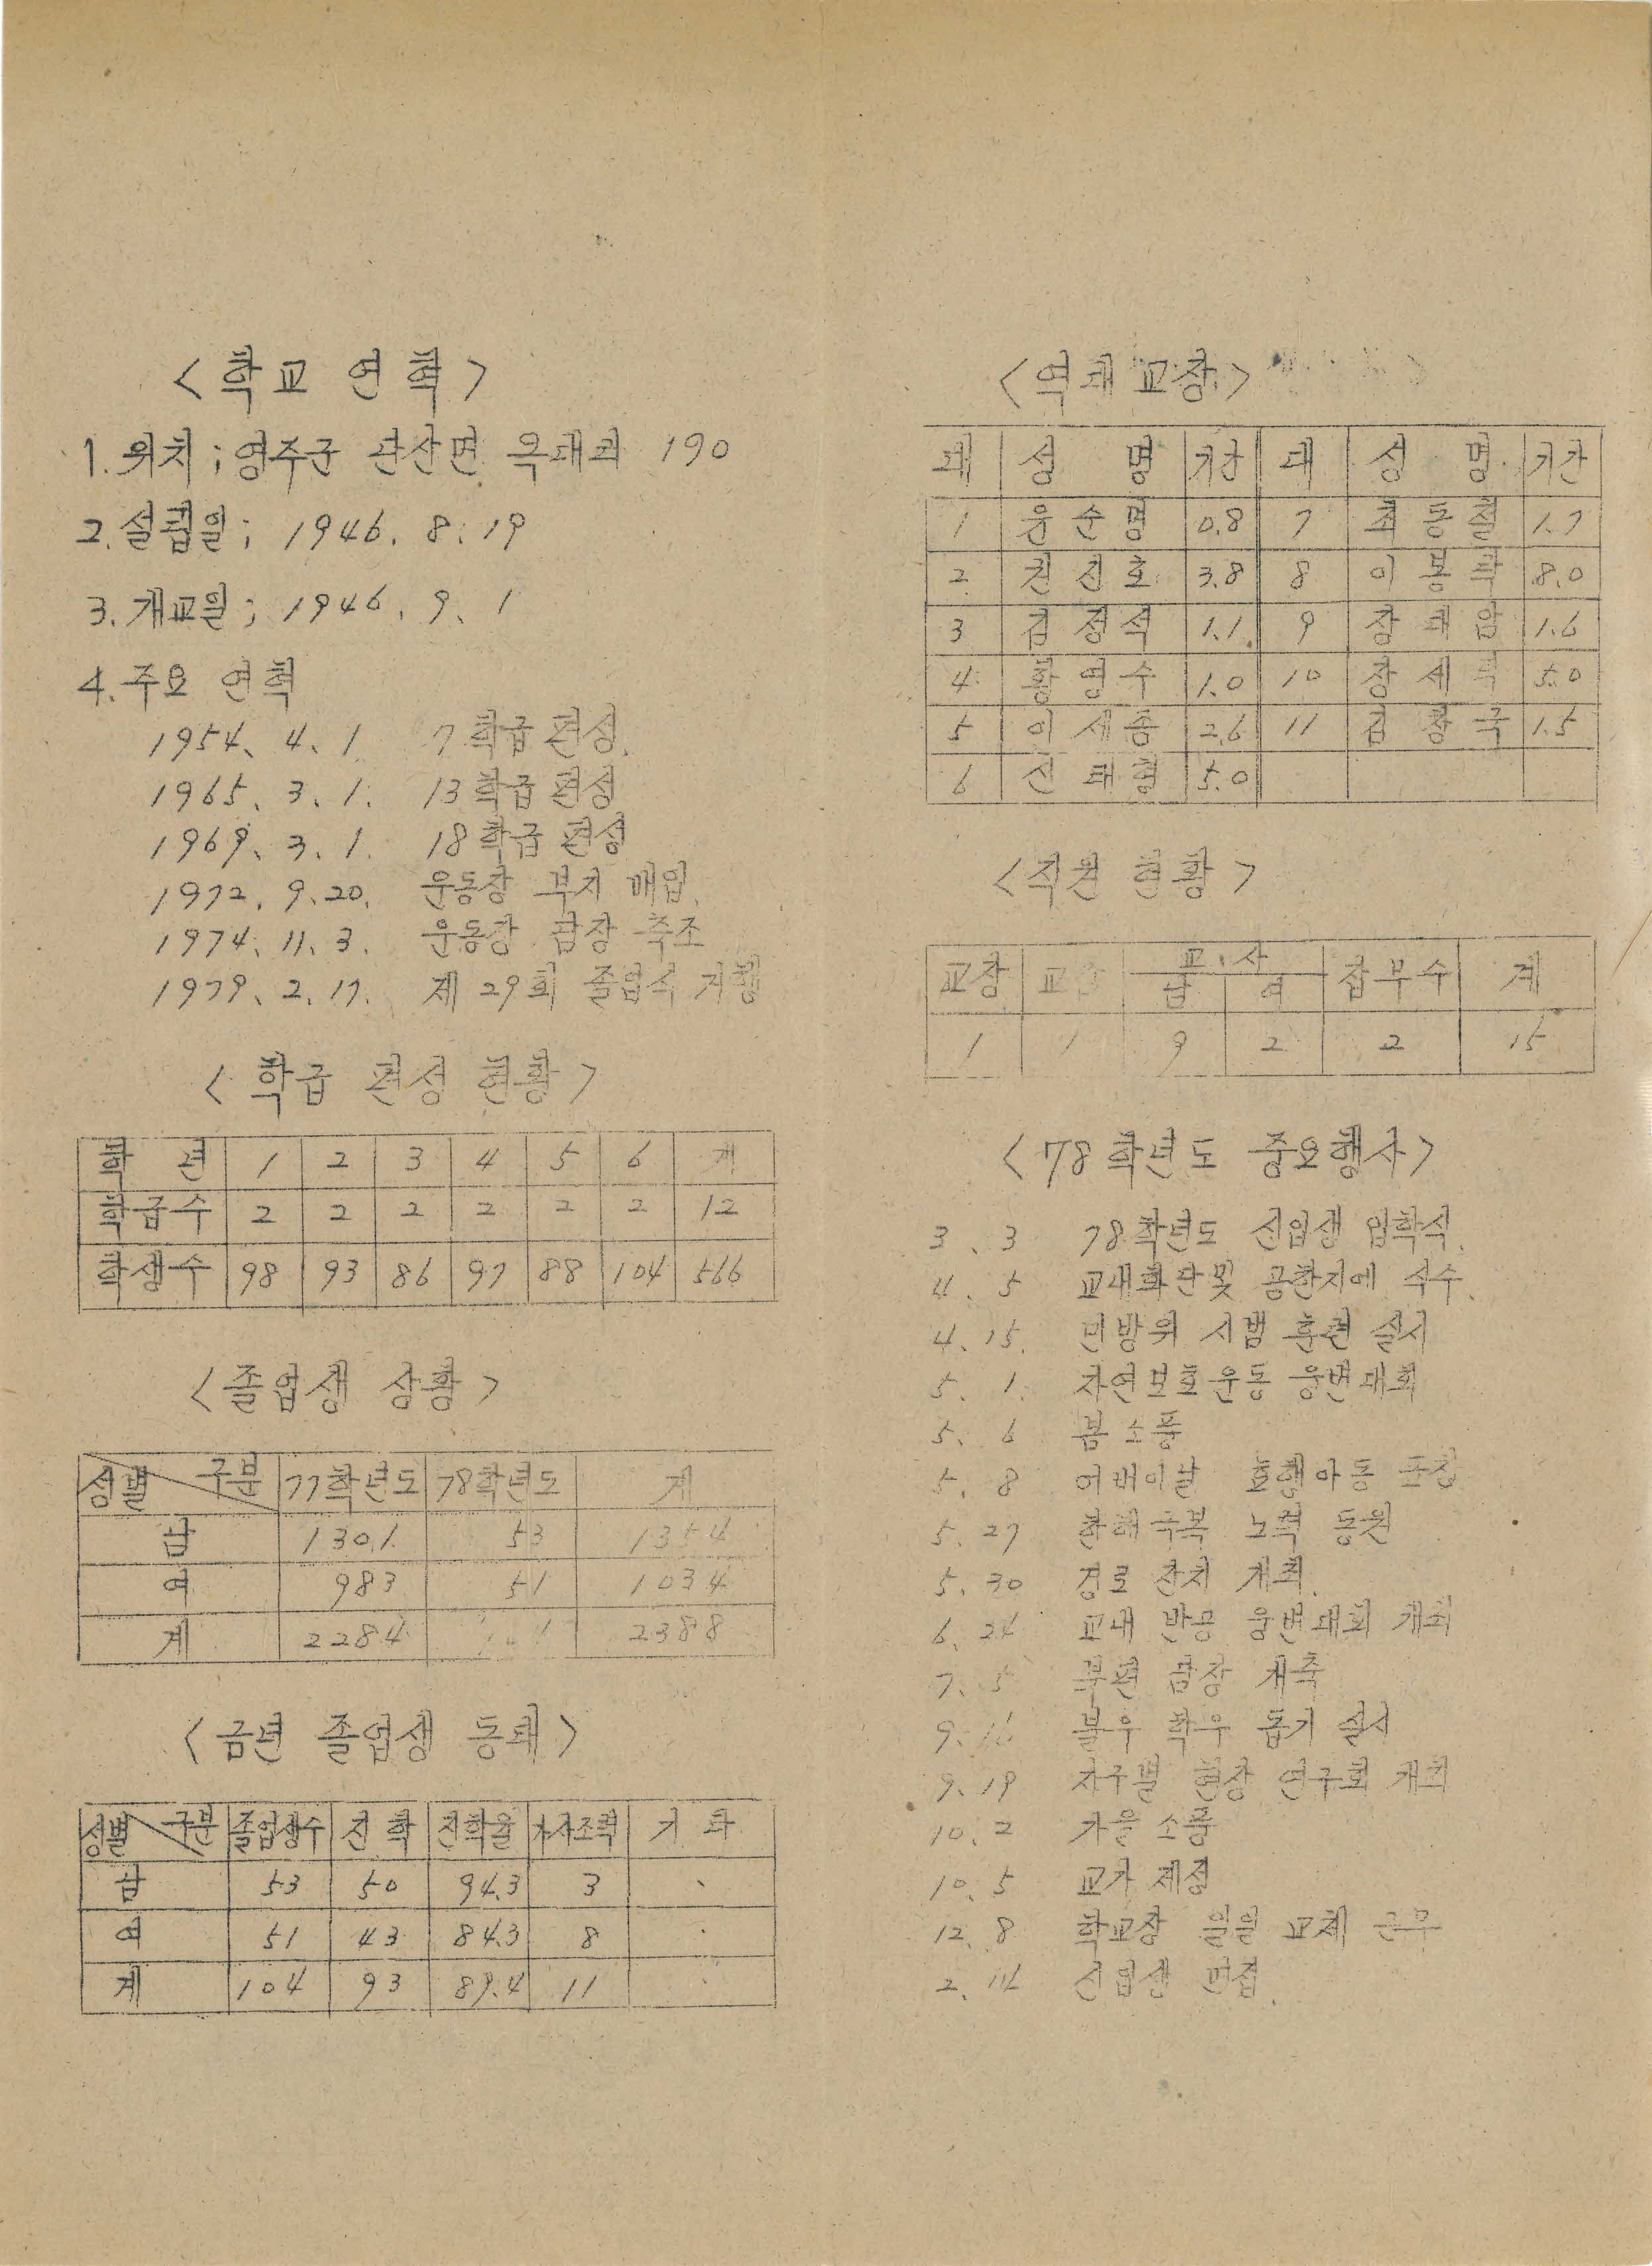 <학교 연혁>
1. 위치; 영주군 단산면 옥대리 190
2. 설립일; 1946. 8. 19
3. 개교일; 1946. 9. 1
4. 주요 연혁
1954. 4. 1. 7학급 편성.
1965. 3. 1. 13학급 편성
1969. 3. 1. 18학급 편성
1972. 9. 20. 운동장 부지 매입.
1974. 11. 3. 운동장 담장 축조
1979. 2. 17. 제 29회 졸업식 거행
<학급 편성 현황>
학년 1 2 3 4 5 6 계
학급수 2 2 2 2 2 2 12
학생수 98 93 86 97 88 104 566
<졸업생 상황>
성별 구분 77학년도 78학년도 계
남 1301 53 1354
여 983 51 1034
계 2284 2388
<금년 졸업생 동태>
성별 구분 졸업생수 진학 진학율 가사조력 기타
남 53 50 94.3 3
여 51 43 84.3 8
계 104 93 89.4 11
<역대 교장>
대 성명 기간 대 성명 기간
1 윤순명 0.8 7 최동철 1.7
2 진호 3.8 8 이봉학 8.0
3 김정석 1.1 9 장태암 1.6
4 황영수 1.0 10 장세 5.0
5 이세종 2.6 11 김창국 1.5
6 신태형 5.0
<직원 현황>
교장 교감 교사 남 여 잡부수 계
1 1 9 2 2 15
<78학년도 중요행사>
3. 3 78학년도 신입생 입학식.
4. 5 교내화단및 공한지에 식수.
4. 15. 민방위 시범 훈련 실시
5. 1. 자연보호운동 웅변대회
5. 6 봄 소풍
5. 8 어버이날 효행아동 표창
5. 27 한해극복 노력 동원
5. 30 경로 잔치 개최.
6. 24 교내 반공 웅변대회 개최
7. 5 후편 담장 개축
9. 불우 학우 돕기 실시
9. 19 지구별 현장 연구회 개최
10. 2 가을 소풍
10. 5 교가 제정
12. 8 학교장 일일 교체 근무
2. 14 신입생 면접.